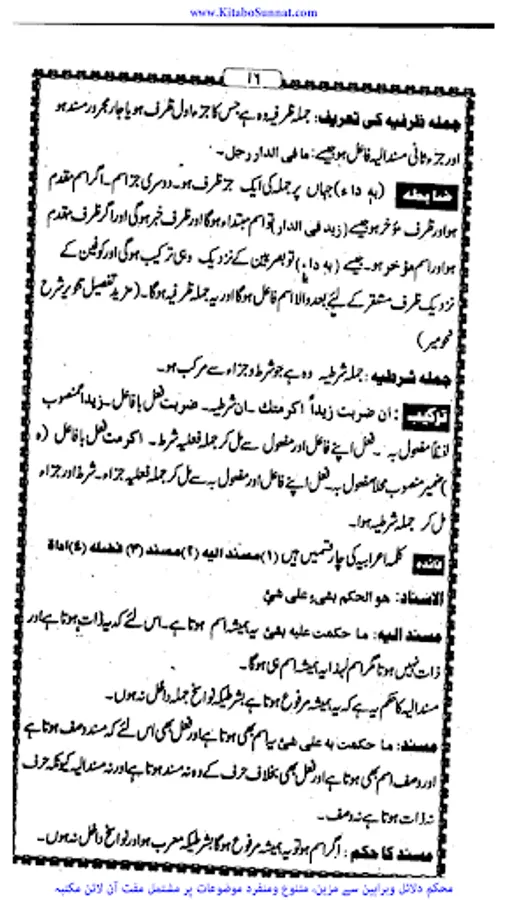 www.KitaboSunnat.com
١٦
جملہ ظرفیہ کی تعریف: جملہ ظرفیہ وہ ہے جس کا جزء اول ظرف ہو یا جار مجرور مسند ہو
اور جزء ثانی مسند الیہ فاعل ہو جیسے: ما فی الدار رجل۔
ضابطہ (بہ داء) جہاں پر جملہ کی ایک جزء ظرف ہو۔ دوسری جزء اسم۔ اگر اسم مقدم
ہو اور ظرف مؤخر ہو جیسے (زید فی الدار) تو اسم مبتداء ہوگا اور ظرف خبر ہوگی اور اگر ظرف مقدم
ہو اور اسم مؤخر ہو۔ جیسے (بہ داء) تو بصریین کے نزدیک وہی ترکیب ہوگی اور کوفین کے
نزدیک ظرف مستقر کے لئے بعد والا اسم فاعل ہوگا اور یہ جملہ ظرفیہ ہوگا۔ (مزید تفصیل تحریر شرح
نحومیر)
جملہ شرطیہ: جملہ شرطیہ وہ ہے جو شرط و جزاء سے مرکب ہو۔
ترکیب: ان ضربت زیداً اکرمتک۔ ان شرطیہ۔ ضربت فعل با فاعل۔ زیداً منصوب
لفظاً مفعول بہ۔ فعل اپنے فاعل اور مفعول سے مل کر جملہ فعلیہ شرط۔ اکرمت فعل با فاعل (ہ
) ضمیر منصوب محلا مفعول بہ۔ فعل اپنے فاعل اور مفعول بہ سے مل کر جملہ فعلیہ جزاء۔ شرط اور جزاء
مل کر جملہ شرطیہ ہوا۔
فائدہ کلمہ اعرابیہ کی چار قسمیں ہیں (١) مسند الیہ (٢) مسند (٣) فضلہ (٤) اداة
الاسناد: هو الحکم بشیء علی شئ
مسند الیہ: ما حکمت علیہ بشئ یہ ہمیشہ اسم ہوتا ہے۔ اس لئے کہ یہ ذات ہوتا ہے اور
ذات نہیں ہوتا مگر اسم لہذا یہ ہمیشہ اسم ہی ہوگا۔
مسند الیہ کا حکم یہ ہے کہ یہ ہمیشہ مرفوع ہوتا ہے بشرطیکہ نواسخ جملہ داخل نہ ہوں۔
مسند: ما حکمت بہ علی شئ یہ اسم بھی ہوتا ہے اور فعل بھی اس لئے کہ مسند وصف ہوتا ہے
اور وصف اسم بھی ہوتا ہے اور فعل بھی بخلاف حرف کے وہ نہ مسند ہوتا ہے اور نہ مسند الیہ کیونکہ حرف
نہ ذات ہوتا ہے نہ وصف۔
مسند کا حکم: اگر اسم ہو تو یہ ہمیشہ مرفوع ہوگا بشرطیکہ معرب ہو اور نواسخ داخل نہ ہوں۔
محکم دلائل وبراہین سے مزین، متنوع ومنفرد موضوعات پر مشتمل مفت آن لائن مکتبہ